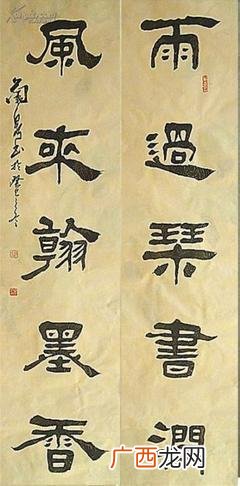 雨過琴書潤
風來翰墨香
广西龙网